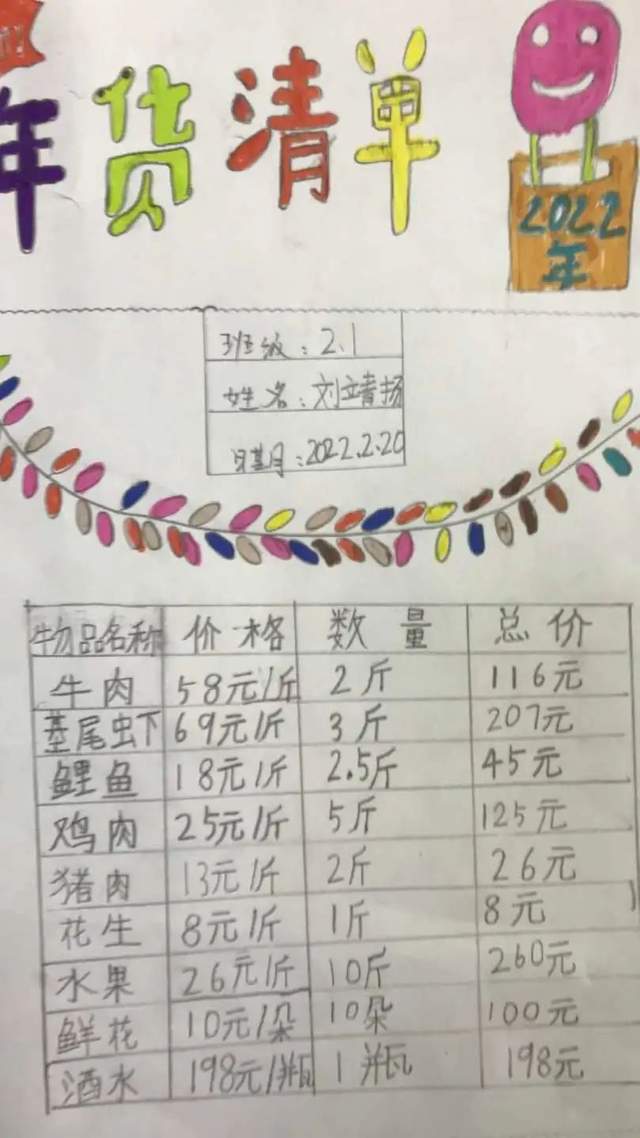 年货清单
2022
年
班级：2.1
姓名：刘靖扬
日期：2022.2.20
物品名称 价格 数量 总价
牛肉 58元/斤 2斤 116元
基尾虫下 69元/斤 3斤 207元
鲤鱼 18元/斤 2.5斤 45元
鸡肉 25元/斤 5斤 125元
猪肉 13元/斤 2斤 26元
花生 8元/斤 1斤 8元
水果 26元/斤 10斤 260元
鲜花 10元/朵 10朵 100元
酒水 198元/瓶 1瓶 198元